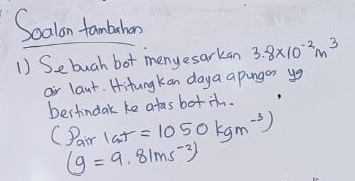 Soalan tambahan
1) Sebuah bot menyesarkan 3.8×10⁻²m³
air laut. Hitungkan daya apungan yg
bertindak ke atas bot itu.
(ρair laut = 1050 kgm⁻³)
(g = 9.81ms⁻²)